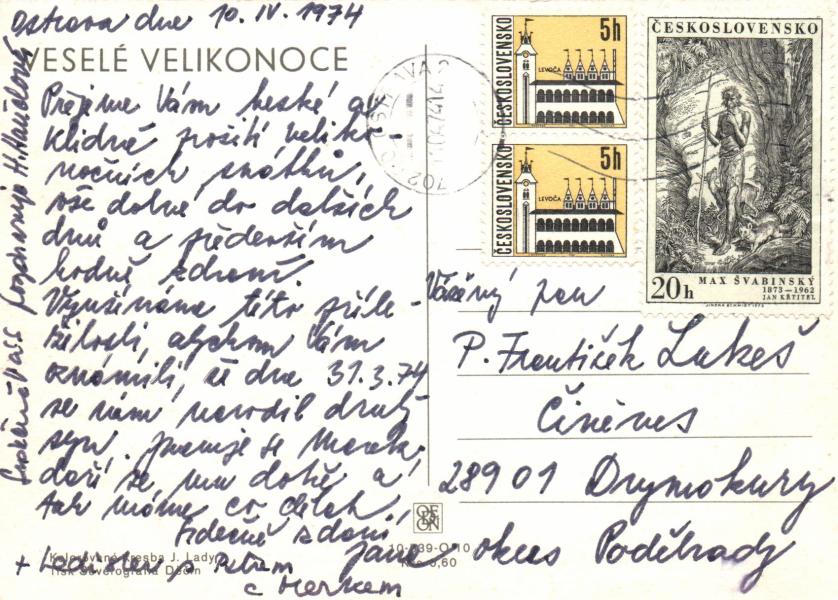 Ostrava dne 10.IV.1974
VESELÉ VELIKONOCE
Přejeme Vám hezké a
klidné prožití veliko-
nočních svátků,
vše dobré do dalších
dnů a především
hodně zdraví.
Využíváme této příle-
žitosti, abychom Vám
oznámili, že dne 31.3.74
se nám narodil druhý
syn. Jmenuje se Marek.
daří se mu dobře a
tak máme co dělat,
Srdečně zdraví
Jana
+ Ladislav s Petrem
a Markem
Srdečně Vás pozdravuje H.
Kolorovaná kresba J. Lady
Tisk Severografia Děčín
ORBIS
10-039-O-10
Kčs 0,60
702 OSTRAVA 2
ČESKOSLOVENSKO
5h
LEVOČA
ČESKOSLOVENSKO
5h
LEVOČA
ČESKOSLOVENSKO
20h
MAX ŠVABINSKÝ
1873–1962
JAN KŘTITEL
Vážený pan
P. František Lukeš
Činěves
28901 Drymokury
okres Poděbrady